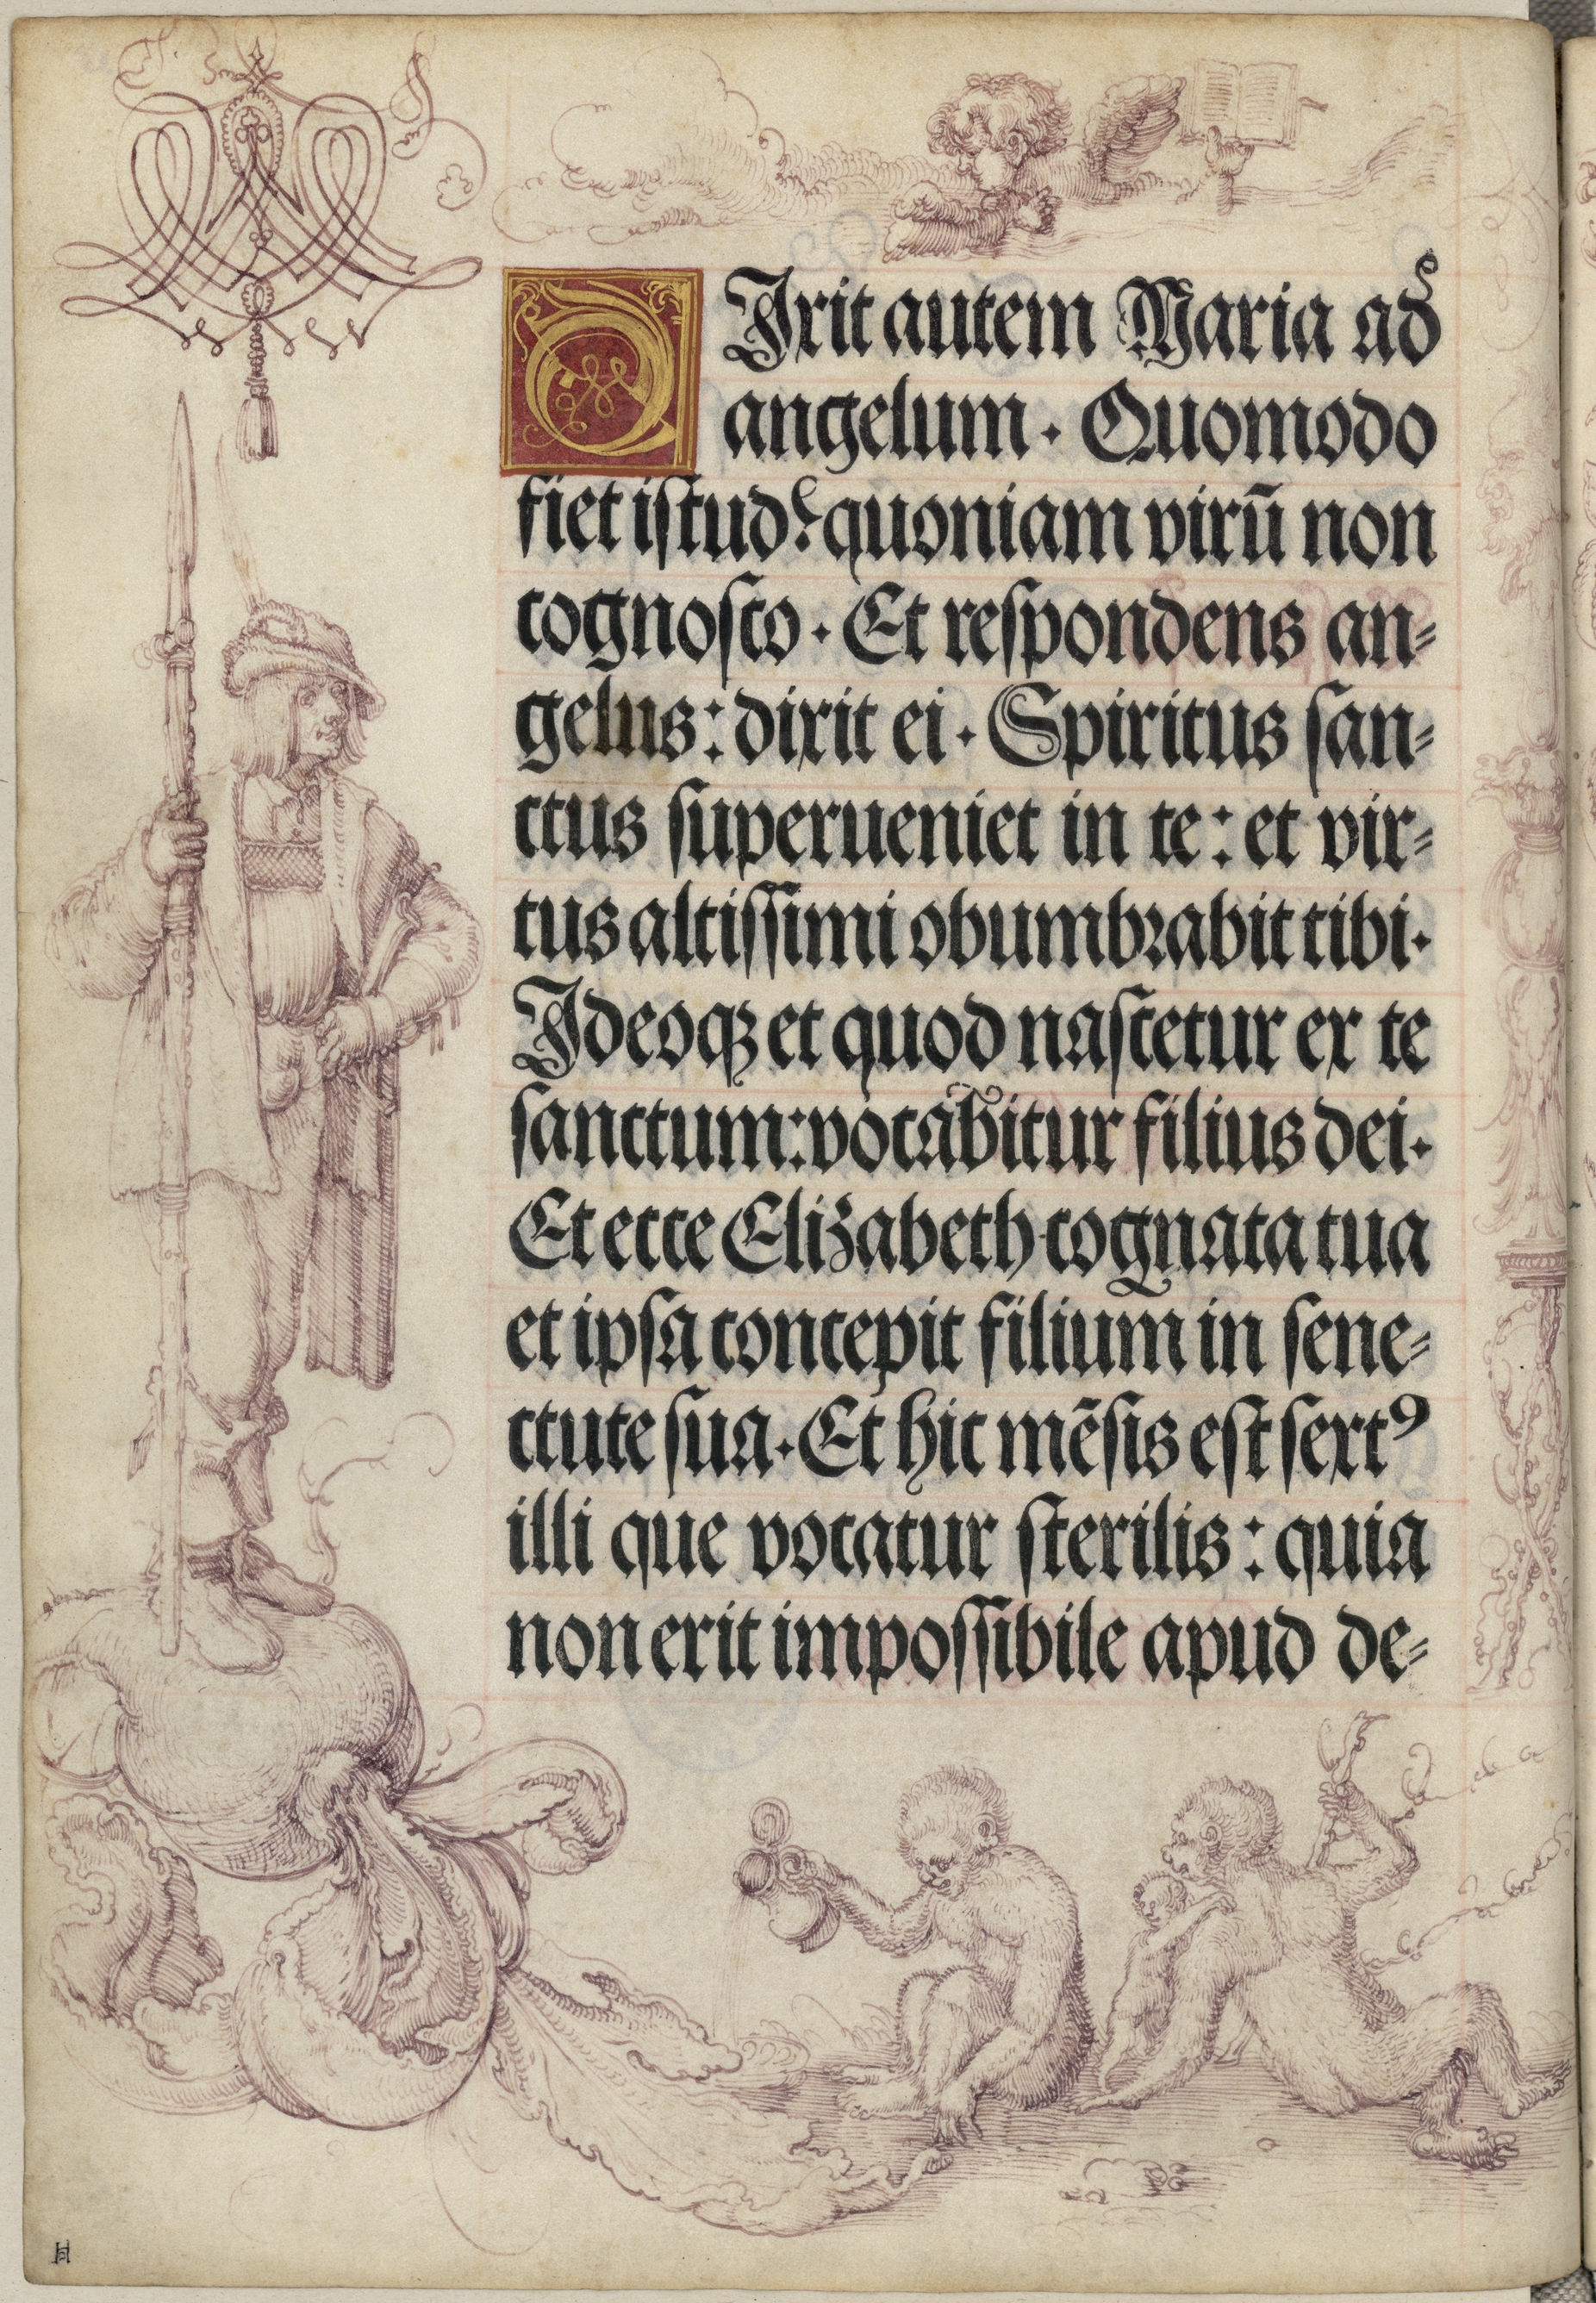 DIxit autem Maria ad
angelum. Quomodo
fiet istud? quoniam virū non
cognosco. Et respondens an=
gelus: dixit ei. Spiritus san=
ctus superueniet in te: et vir=
tus altissimi obumbrabit tibi.
Ideoqꝫ et quod nascetur ex te
sanctum: vocabitur filius dei.
Et ecce Elizabeth cognata tua
et ipsa concepit filium in sene=
ctute sua. Et hic mēsis est sextꝰ
illi que vocatur sterilis: quia
non erit impossibile apud de=